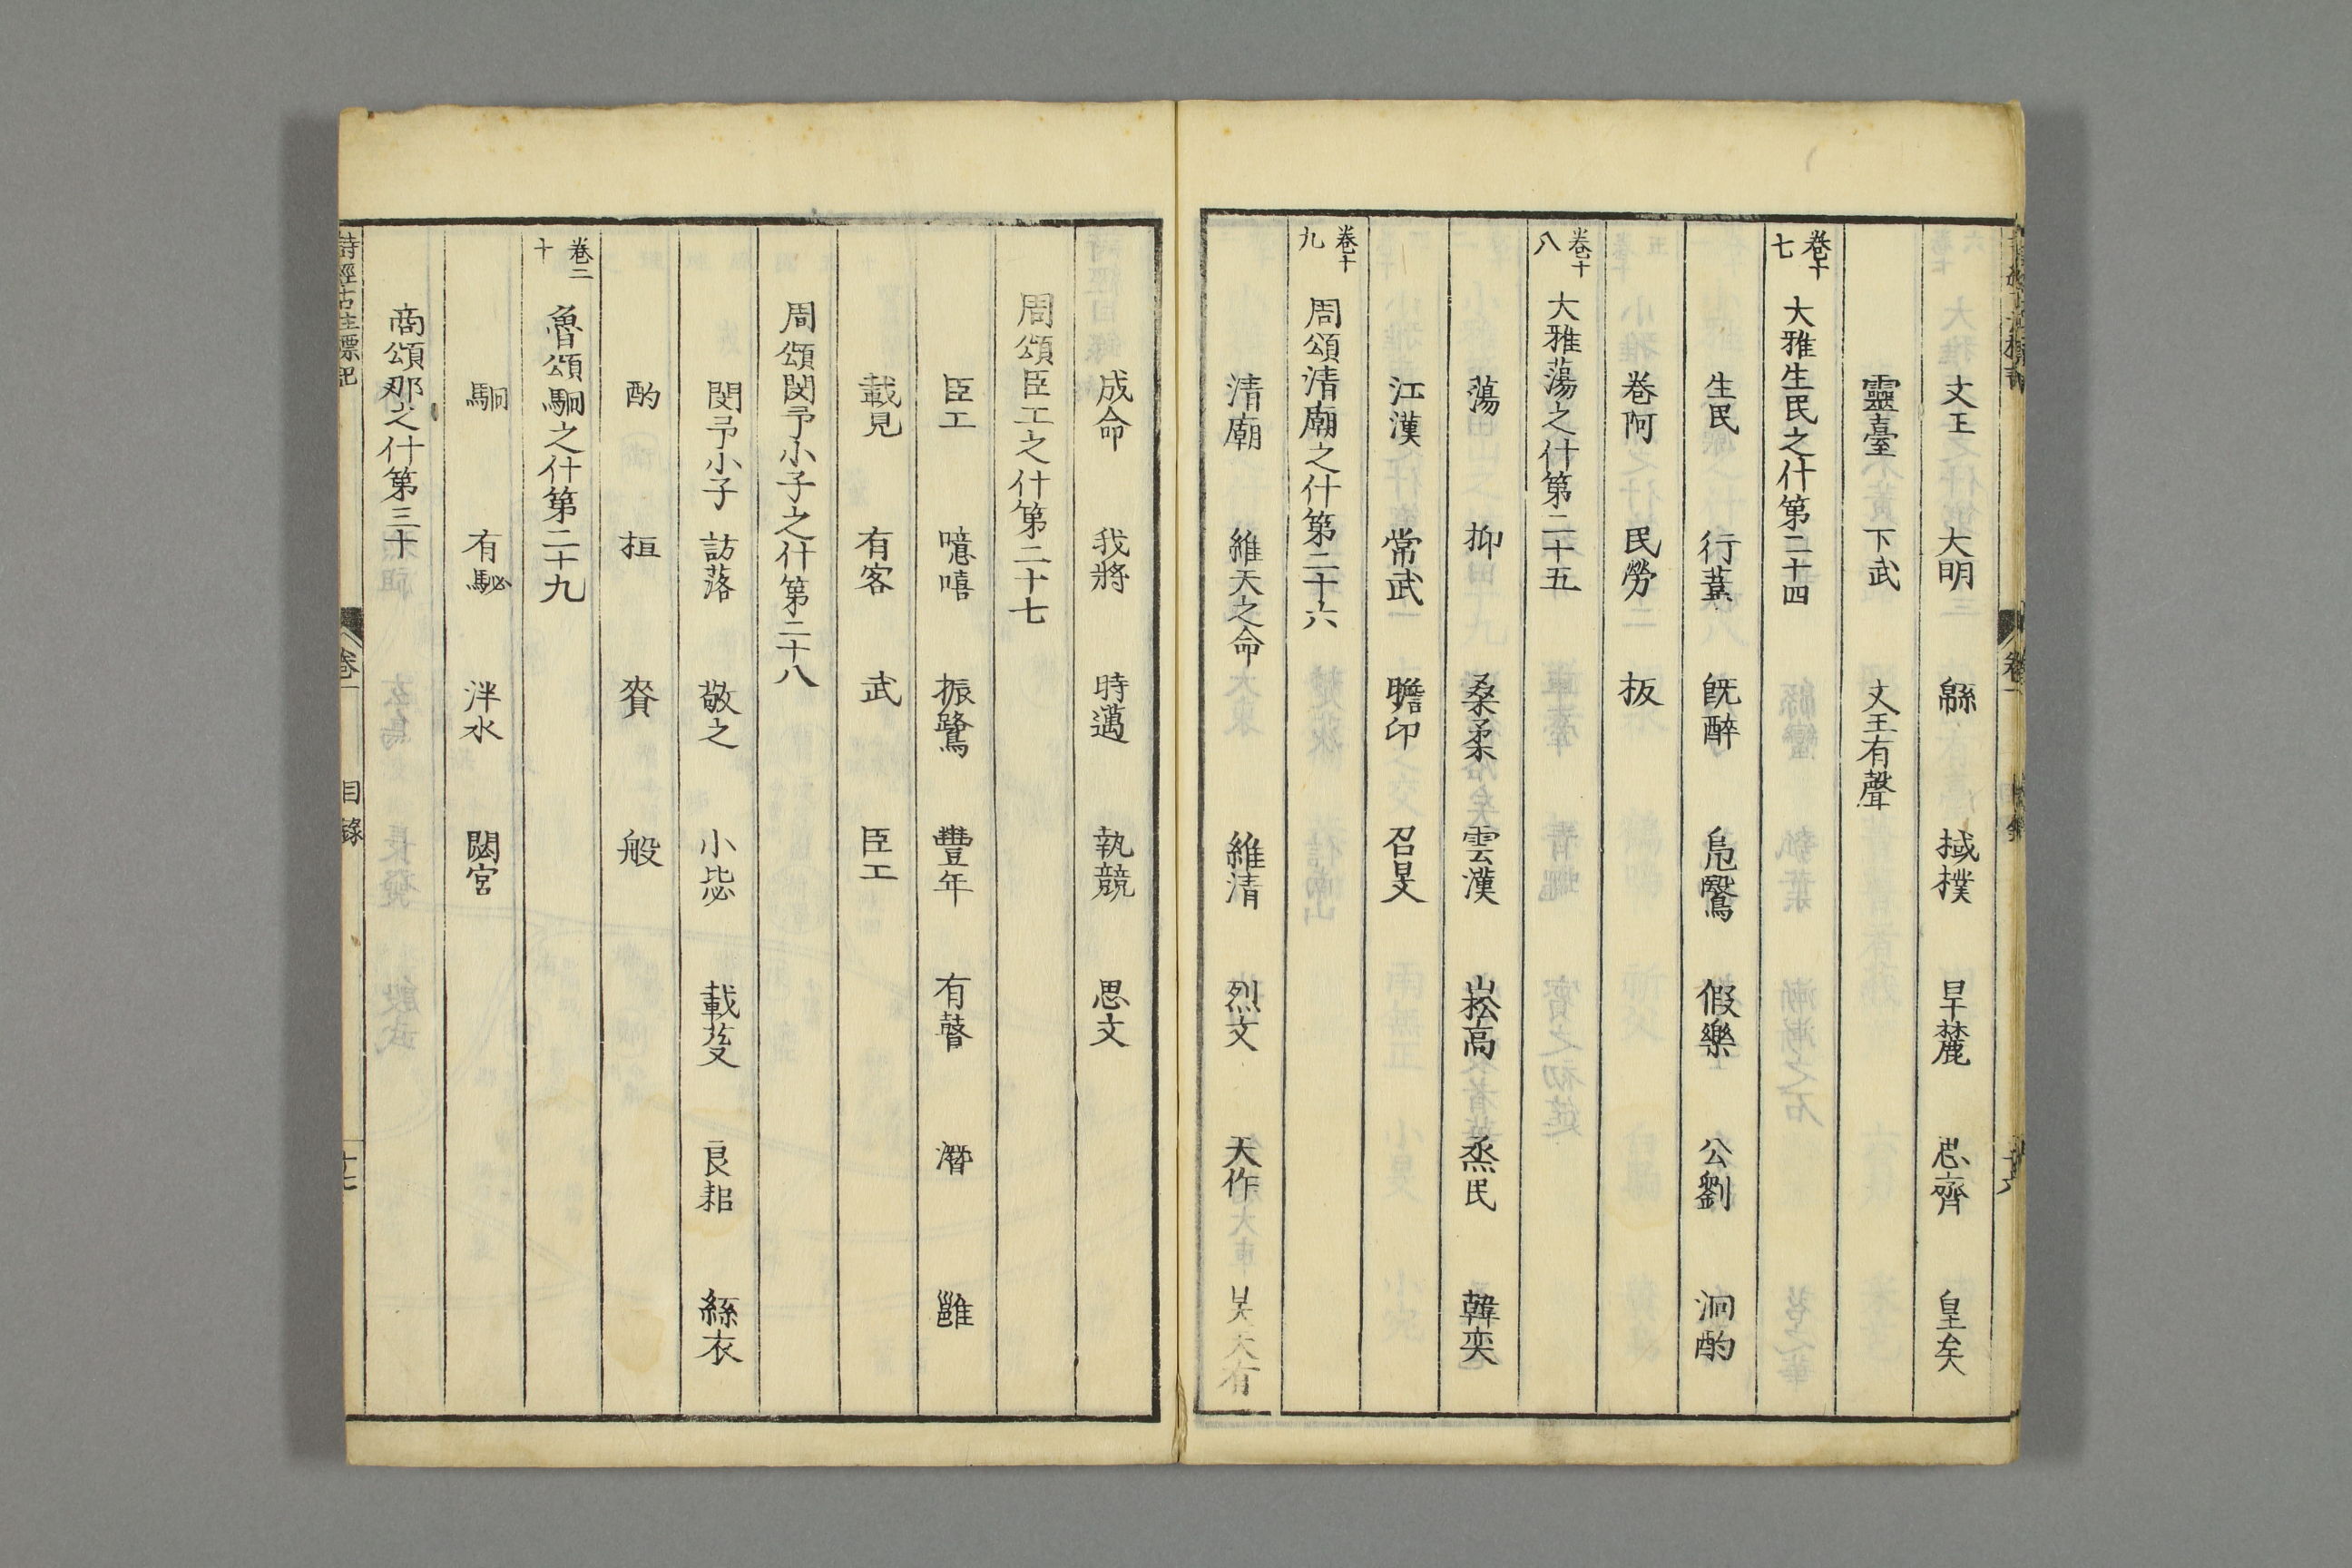 文王　大明　緜　棫樸　旱麓　思齊　皇矣
靈臺　下武　文王有聲
卷十七　大雅生民之什第二十四
生民　行葦　旣醉　鳧鷖　假樂　公劉　泂酌
卷阿　民勞　板
卷十八　大雅蕩之什第二十五
蕩　抑　桑柔　雲漢　崧高　烝民　韓奕
江漢　常武　瞻卬　召旻
卷十九　周頌清廟之什第二十六
清廟　維天之命　維清　烈文　天作　昊天有
成命　我將　時邁　執競　思文
周頌臣工之什第二十七
臣工　噫嘻　振鷺　豐年　有瞽　潛　雝
載見　有客　武　臣工
周頌閔予小子之什第二十八
閔予小子　訪落　敬之　小毖　載芟　良耜　絲衣
酌　桓　賚　般
卷二十　魯頌駉之什第二十九
駉　有駜　泮水　閟宮
商頌那之什第三十
詩經古註標記　卷一　目錄　十七